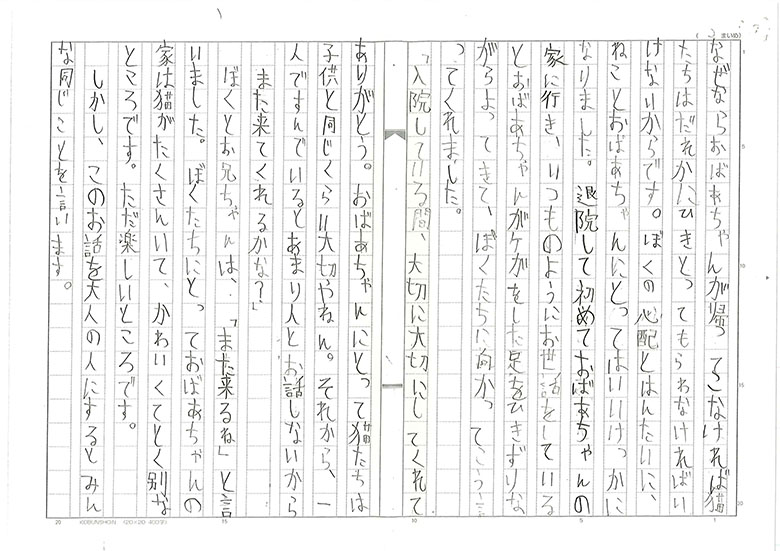 なぜならおばあちゃんが帰ってこなければ猫
たちはだれかにひきとってもらわなければい
けないからです。ぼくの心配とはんたいに、
ねことおばあちゃんにとってはいいけっかに
なりました。退院して初めておばあちゃんの
家に行き、いつものようにお世話をしている
とおばあちゃんがケガをした足をひきずりな
がらよってきて、ぼくたちに向かってこう言
ってくれました。
「入院している間、大切に大切にしてくれて
ありがとう。おばあちゃんにとって猫たちは
子供と同じくらい大切やねん。それから、一
人ですんでいるとあまり人とお話しないから
また来てくれるかな?」
ぼくとお兄ちゃんは、「また来るね」と言
いました。ぼくたちにとっておばあちゃんの
家は猫がたくさんいて、かわいくてとく別な
ところです。ただ楽しいところです。
しかし、このお話を大人の人にするとみん
な同じことを言います。
( まいめ)
1
5
10
15
20
5
10
15
20
KOBUNSHOIN (20×20 400字)